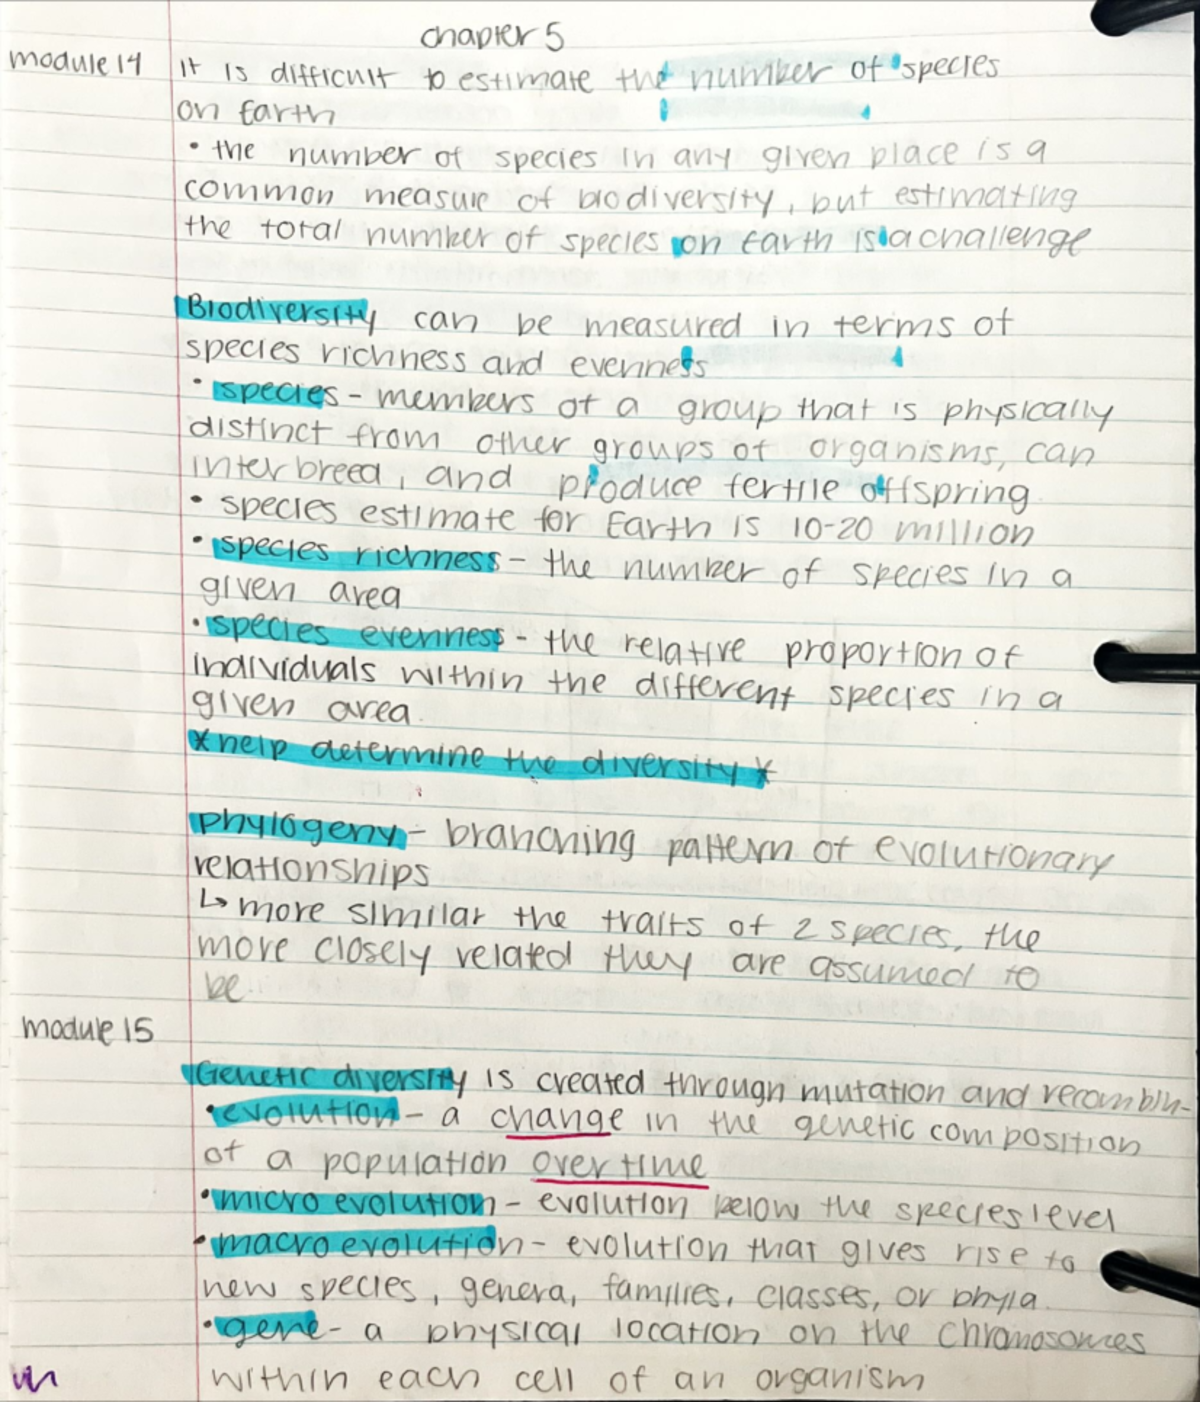 chapter 5
module 14
It is difficult to estimate the number of species
on Earth
• the number of species in any given place is a
common measure of biodiversity, but estimating
the total number of species on Earth is a challenge
Biodiversity can be measured in terms of
species richness and evenness
• species - members of a group that is physically
distinct from other groups of organisms, can
interbreed, and produce fertile offspring
• species estimate for Earth is 10-20 million
• species richness - the number of species in a
given area
• species evenness - the relative proportion of
individuals within the different species in a
given area.
*help determine the diversity*
phylogeny - branching pattern of evolutionary
relationships
↳ more similar the traits of 2 species, the
more closely related they are assumed to
be.
module 15
Genetic diversity is created through mutation and recombin-
• evolution - a change in the genetic composition
of a population over time
• micro evolution - evolution below the species level
• macro evolution - evolution that gives rise to
new species, genera, families, classes, or phyla.
• gene - a physical location on the chromosomes
within each cell of an organism